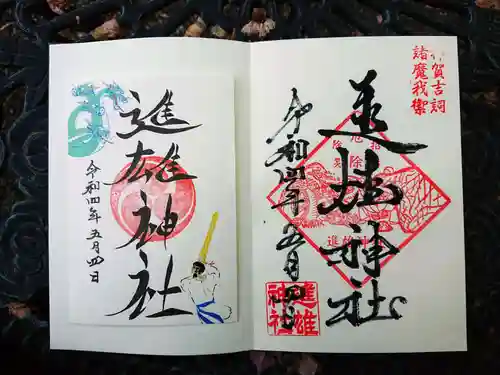 奉賀吉詞
諸魔我禦
進雄神社
令和四年五月四日
厄除
進雄
神社
進雄神社
令和四年五月四日